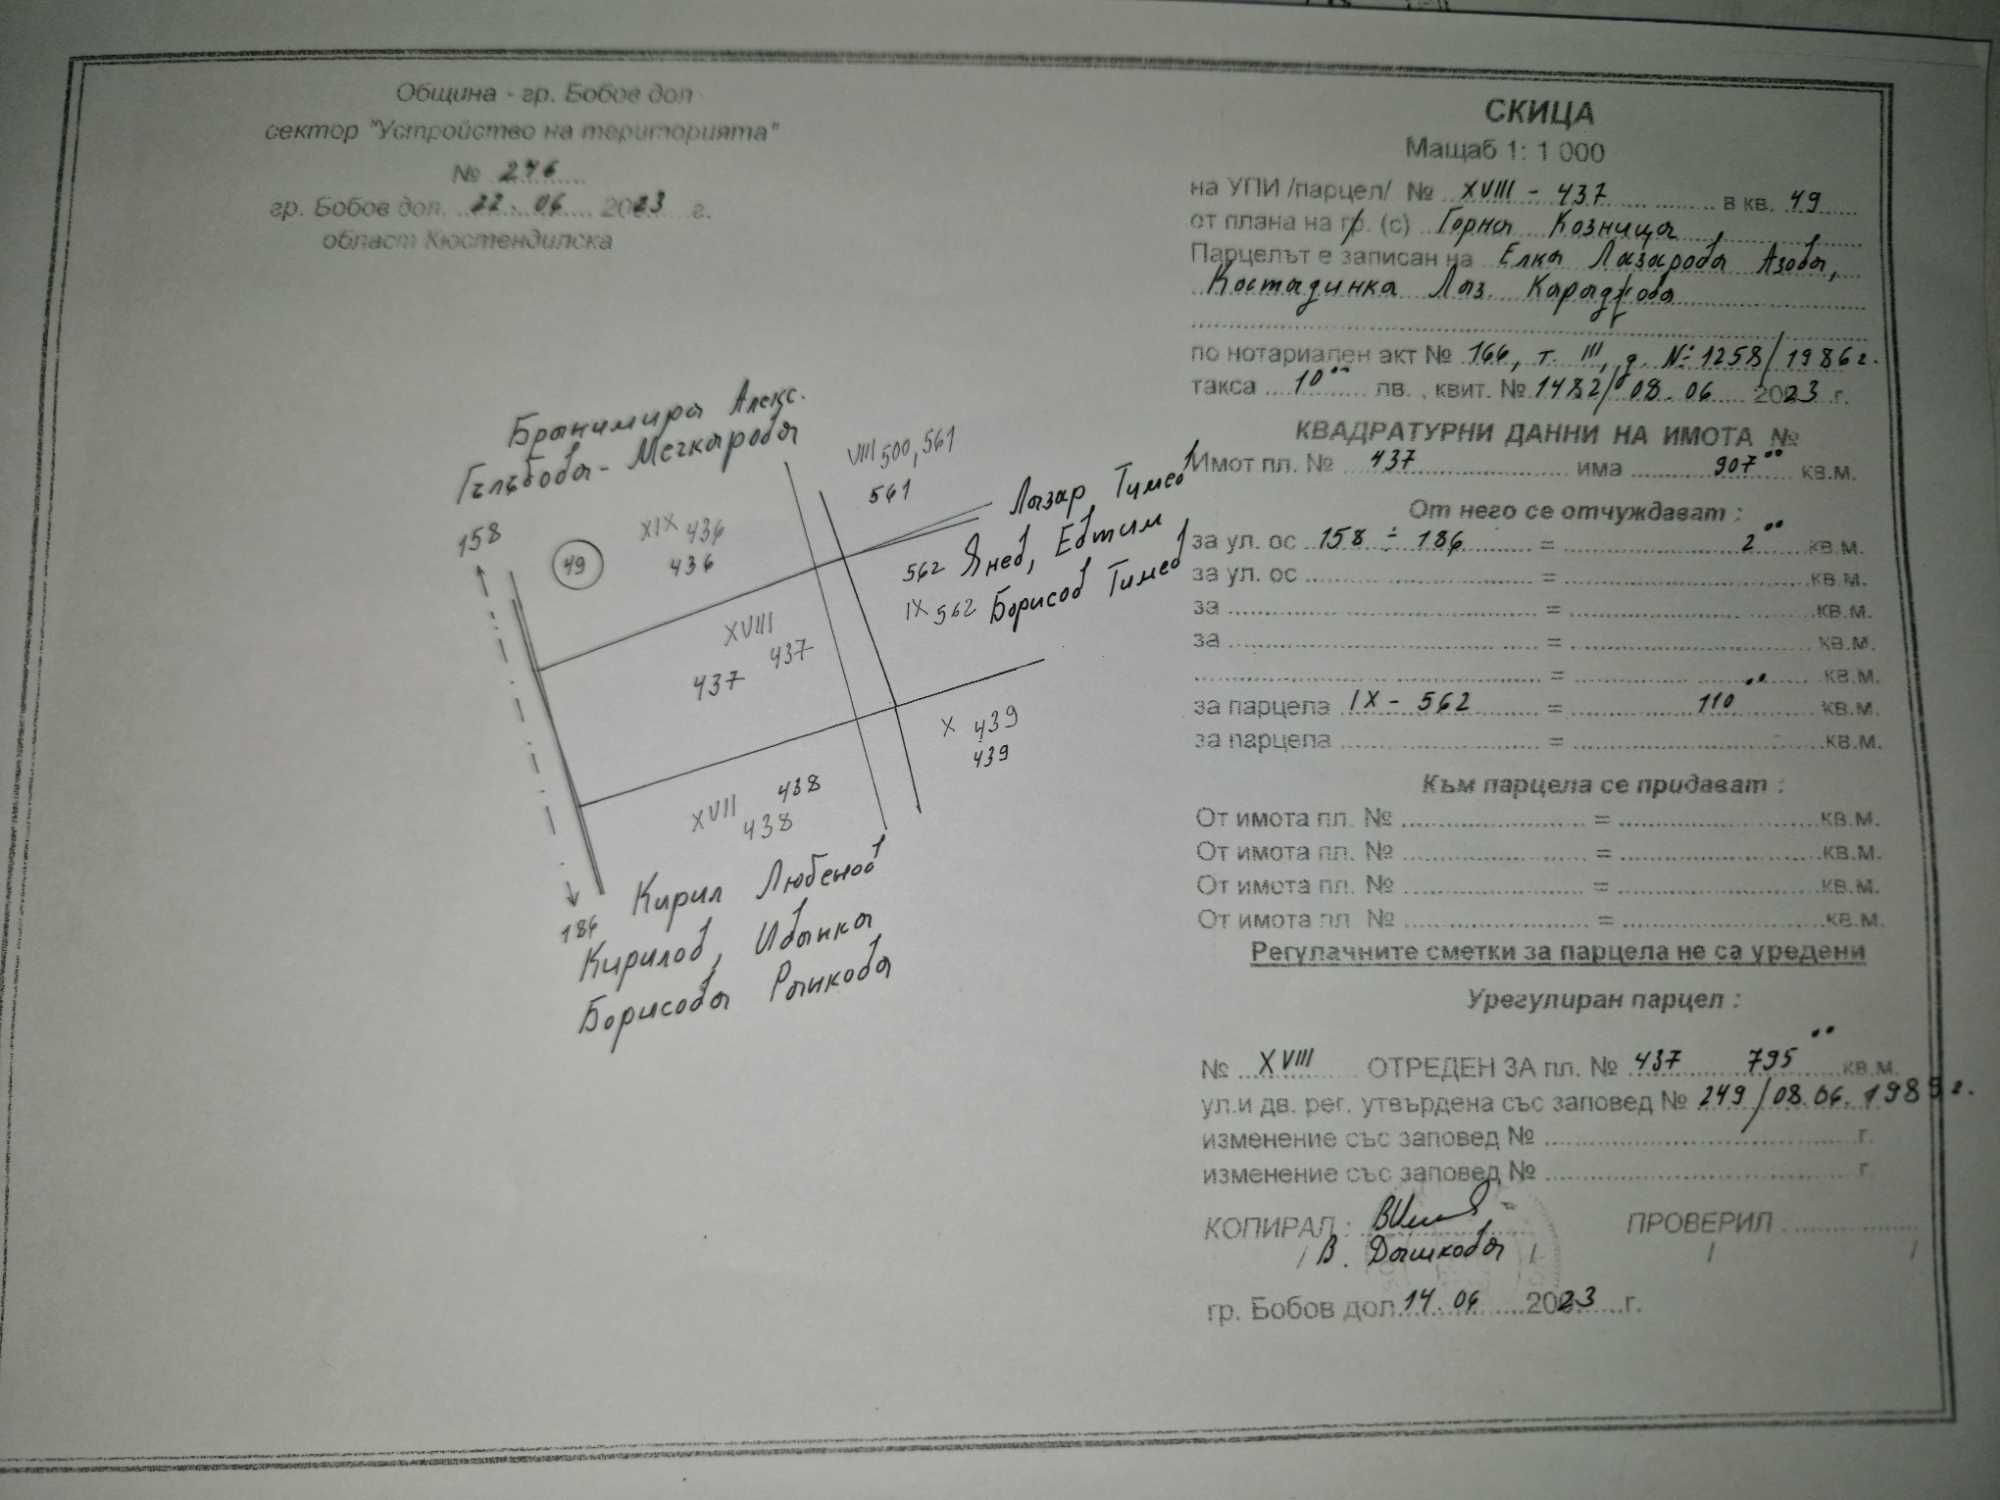 Община - гр. Бобов дол
сектор "Устройство на територията"
№ 276
гр. Бобов дол, 22. 06 2023 г.
област Кюстендилска
Бранимира Алекс.
Гълъбова - Мечкарова
158
49
XIX 436
436
VIII 500, 561
561
Лазар Тимев
562 Янев, Евтим
IX 562 Борисов Тимев
XVIII
437 437
X 439
439
XVII 438
438
186
Кирил Любенов
Кирилов, Иванка
Борисова Ранкова
СКИЦА
Мащаб 1: 1 000
на УПИ /парцел/ № XVIII - 437 в кв. 49
от плана на гр. (с) Горна Козница
Парцелът е записан на Елка Лазарова Азова,
Костадинка Лаз.
по нотариален акт № 166, т. III, д. № 1258/1986 г.
такса 10 лв., квит. № 1482/08.06 2023 г.
КВАДРАТУРНИ ДАННИ НА ИМОТА №
Имот пл. № 437 има 907 кв.м.
От него се отчуждават :
за ул. ос 158 ÷ 186 = 2 кв.м.
за ул. ос = кв.м.
за = кв.м.
за = кв.м.
= кв.м.
за парцела IX - 562 = 110 кв.м.
за парцела = кв.м.
Към парцела се придават :
От имота пл. № = кв.м.
От имота пл. № = кв.м.
От имота пл. № = кв.м.
От имота пл. № = кв.м.
Регулачните сметки за парцела не са уредени
Урегулиран парцел :
№ XVIII ОТРЕДЕН ЗА пл. № 437 795 кв.м.
ул.и дв. рег. утвърдена със заповед № 249/08.06.1985 г.
изменение със заповед № г.
изменение със заповед № г.
КОПИРАЛ : ПРОВЕРИЛ
/ В. Дашкова / / /
гр. Бобов дол 14. 06 2023 г.